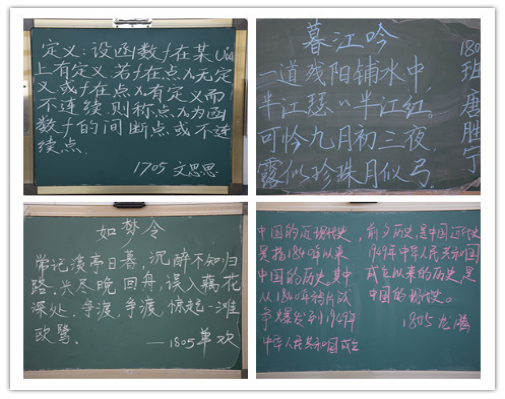 定义:设函数f在某U(x₀)
上有定义.若f在点x₀无定
义,或f在点x₀有定义而
不连续,则称点x₀为函
数f的间断点或不连
续点.
1705 文思思
暮江吟
一道残阳铺水中,
半江瑟〃半江红。
可怜九月初三夜,
露似珍珠月似弓.
180
班
唐
胜
宁
如梦令
常记溪亭日暮,沉醉不知归
路,兴尽晚回舟,误入藕花
深处,争渡,争渡,惊起一滩
鸥鹭.
——1805单欢
中国的近现代史,
是指1840年以来
中国的历史,其中
从1840年鸦片战
争爆发,到1949年
中华人民共和国成立
前夕历史,是中国近代史
1949年中华人民共和国
成立以来的历史,是
中国的现代史。
1805 龙腾